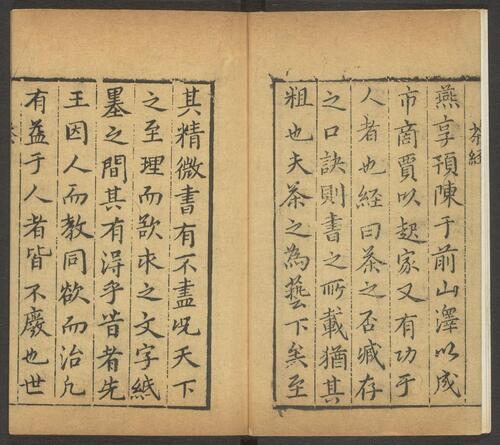 茶經
燕享預陳于前山澤以成
市商賈以起家又有功于
人者也經曰茶之否臧存
之口訣則書之所載猶其
粗也夫茶之為藝下矣至
其精微書有不盡况天下
之至理而欲求之文字紙
墨之間其有得乎昔者先
王因人而教同欲而治凢
有益于人者皆不廢也世